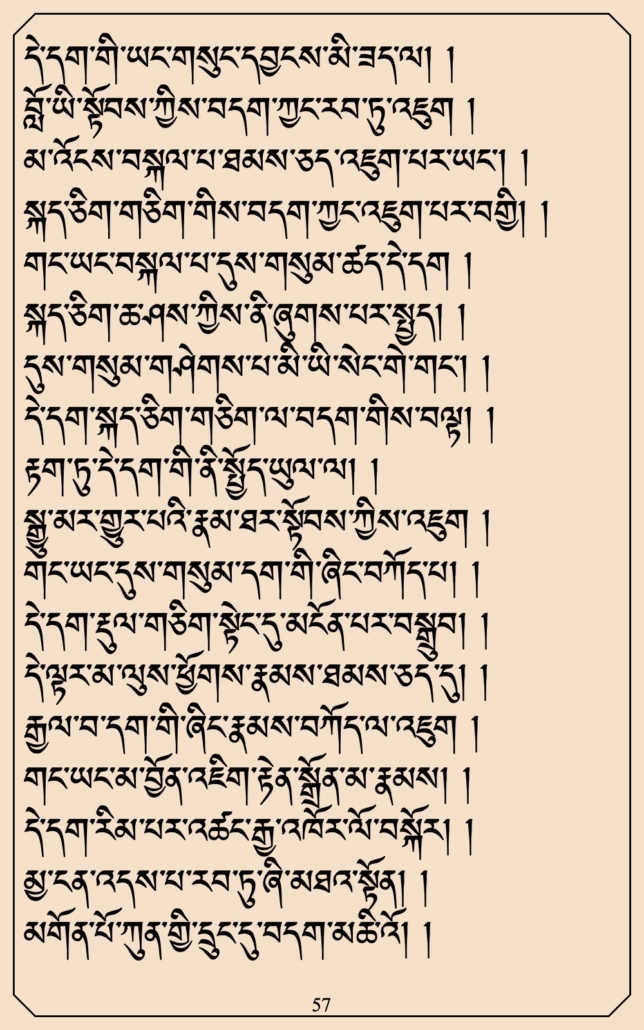 དེ་དག་གི་ཡང་གསུང་དབྱངས་མི་ཟད་ལ། །
བློ་ཡི་སྟོབས་ཀྱིས་བདག་ཀྱང་རབ་ཏུ་འཇུག །
མ་འོངས་བསྐལ་པ་ཐམས་ཅད་འཇུག་པར་ཡང་། །
སྐད་ཅིག་གཅིག་གིས་བདག་ཀྱང་འཇུག་པར་བགྱི། །
གང་ཡང་བསྐལ་པ་དུས་གསུམ་ཚད་དེ་དག །
སྐད་ཅིག་ཆ་ཤས་ཀྱིས་ནི་ཞུགས་པར་སྤྱད། །
དུས་གསུམ་གཤེགས་པ་མི་ཡི་སེང་གེ་གང་། །
དེ་དག་སྐད་ཅིག་གཅིག་ལ་བདག་གིས་བལྟ། །
རྟག་ཏུ་དེ་དག་གི་ནི་སྤྱོད་ཡུལ་ལ། །
སྒྱུ་མར་གྱུར་པའི་རྣམ་ཐར་སྟོབས་ཀྱིས་འཇུག །
གང་ཡང་དུས་གསུམ་དག་གི་ཞིང་བཀོད་པ། །
དེ་དག་རྡུལ་གཅིག་སྟེང་དུ་མངོན་པར་བསྒྲུབ། །
དེ་ལྟར་མ་ལུས་ཕྱོགས་རྣམས་ཐམས་ཅད་དུ། །
རྒྱལ་བ་དག་གི་ཞིང་རྣམས་བཀོད་ལ་འཇུག །
གང་ཡང་མ་བྱོན་འཇིག་རྟེན་སྒྲོན་མ་རྣམས། །
དེ་དག་རིམ་པར་འཚང་རྒྱ་འཁོར་ལོ་བསྐོར། །
མྱ་ངན་འདས་པ་རབ་ཏུ་ཞི་མཐའ་སྟོན། །
མགོན་པོ་ཀུན་གྱི་དྲུང་དུ་བདག་མཆིའོ། །
57